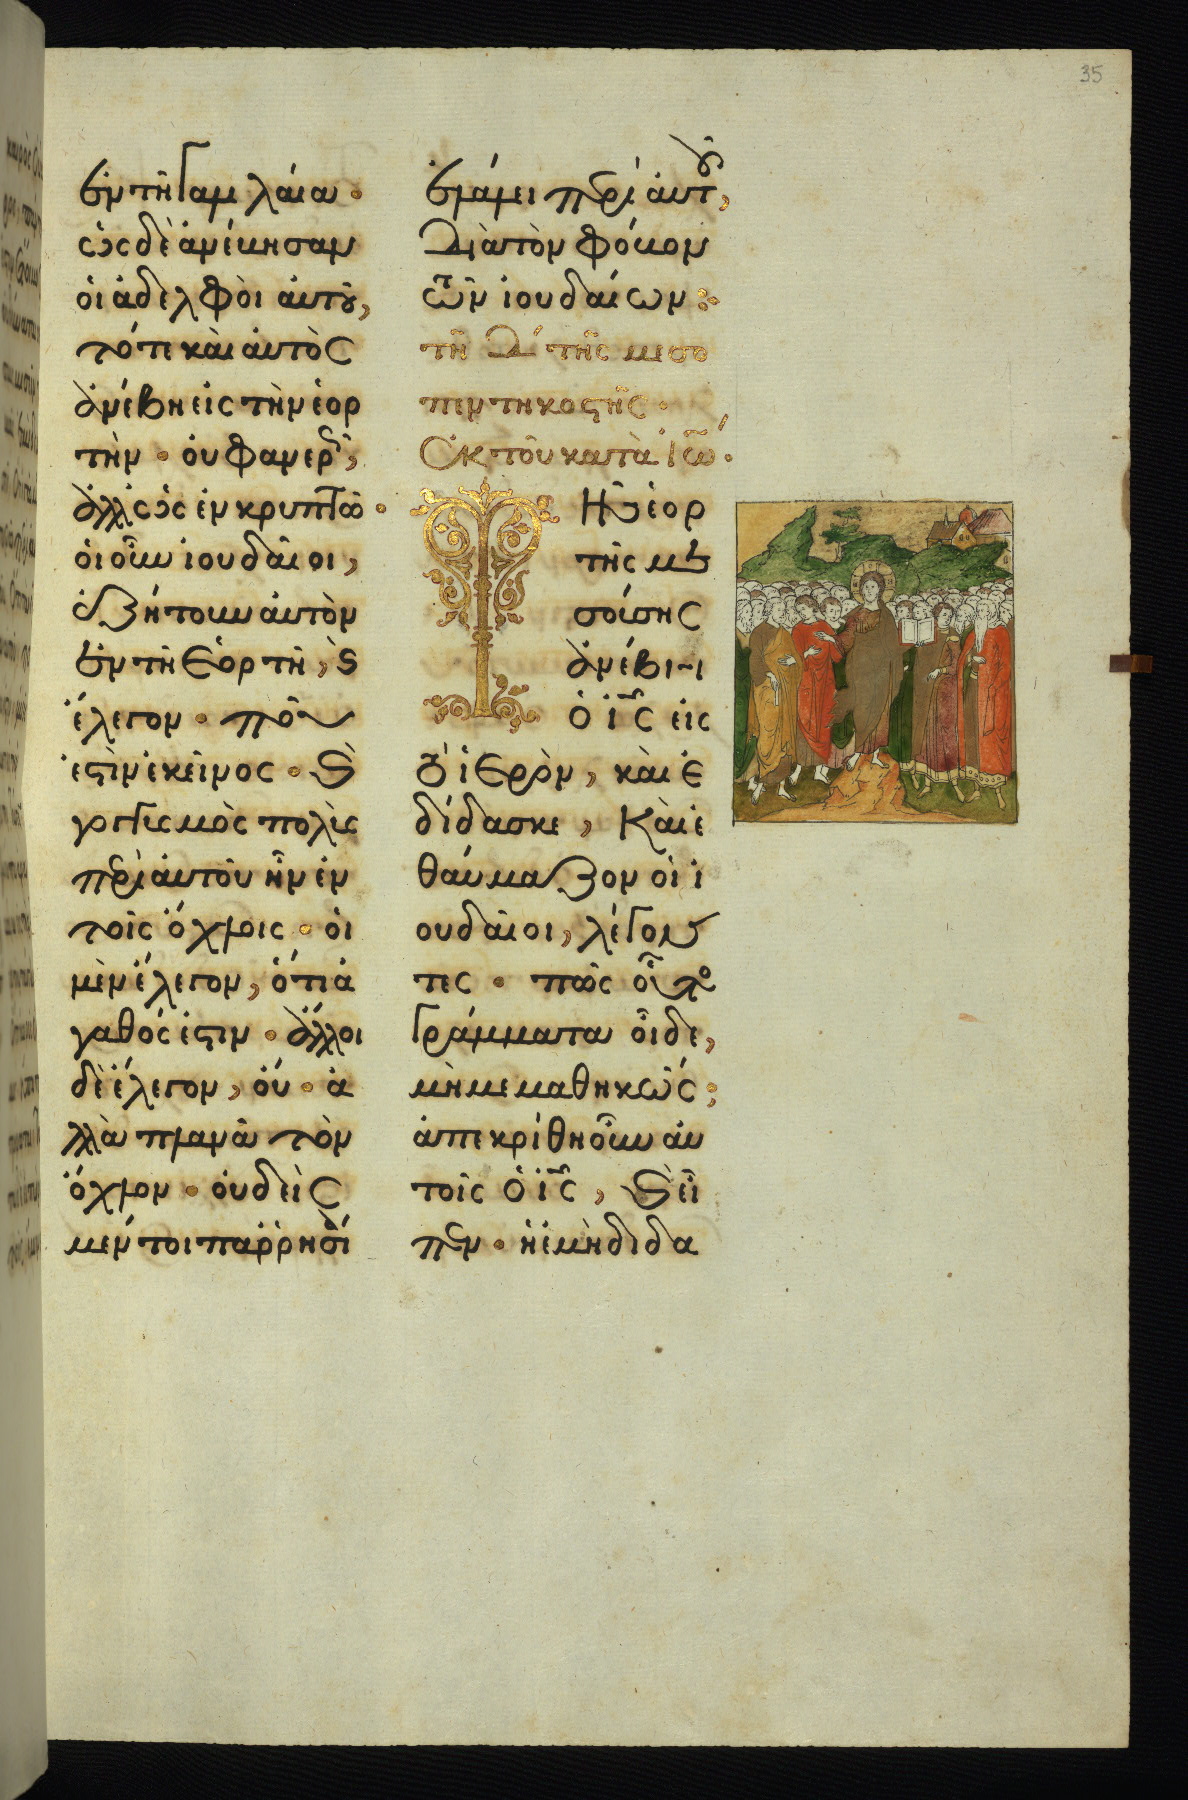 35
ἐν τῆ Γαλιλαία.
ὡς δὲ ἀνέβησαν
οἱ ἀδελφοὶ ἀυτοῦ,
τότε καὶ ἀυτὸς
ἀνέβη εἰς τὴν ἑορ
τὴν. ὀυ φανερῶς,
ἀλλ' ὡς ἐν κρυπτῶ.
ὁι οὖν ἰουδαῖοι,
ἐζήτουν ἀυτὸν
ἐν τῆ ἑορτῆ, ϗ
ἔλεγον. ποῦ
ἐϛὶν ἐκεῖνος. ϗ
γογγυσμὸς πολὺς
περὶ ἀυτοῦ ἦν ἐν
τοῖς ὄχλοις. ὁι
μὲν ἔλεγον, ὅτι ἀ
γαθός ἐϛιν. ἄλλοι
δὲ ἔλεγον, ὀύ. ἀ
λλὰ πλανᾶ τὸν
ὄχλον. ὀυδεὶς
μέντοι παῤῥησί
α ἐλάλει περὶ ἀυτοῦ,
διὰ τὸν φόβον
τῶν ἰουδαίων:
τῆ Δ' τῆς μεσο
πεντηκοϛῆς.
Ἐκ τοῦ κατὰ Ἰω.
Τ Ης ἑορ
τῆς με
σούσης
ἀνέβη
ὁ ἰς εἰς
τὸ ἱερὸν, καὶ ἐ
δίδασκε, Καὶ ἐ
θαύμαζον ὁι ἰ
ουδαῖοι, λέγον
τες. πῶς οὗτος
γράμματα οἶδε,
μὴ μεμαθηκώς;
ἀπεκρίθη οὖν ἀυ
τοῖς ὁ ἰς, ϗ εἶ
πεν. ἡ ἐμὴ διδα